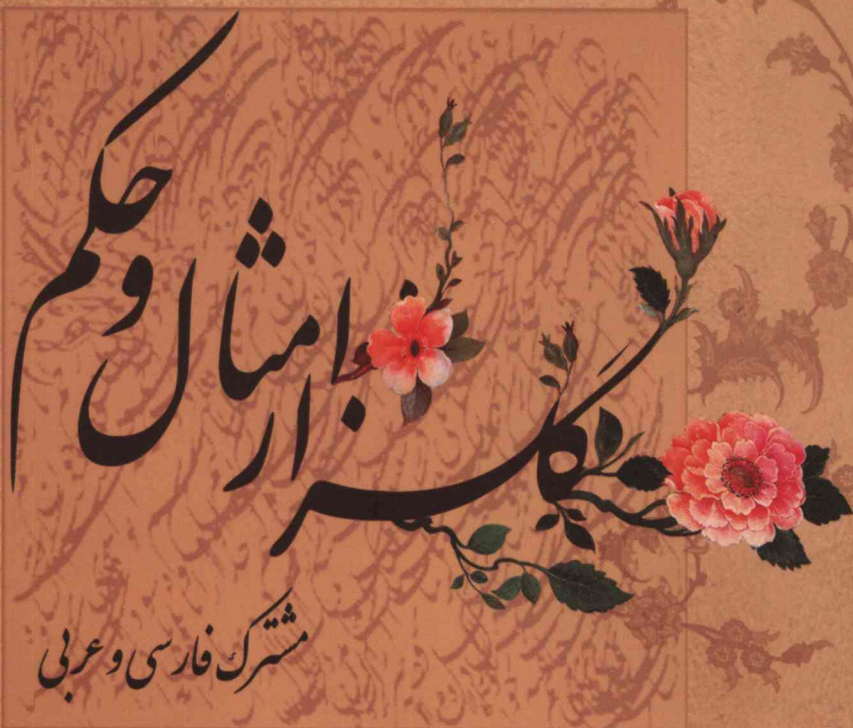 گلزار امثال و حکم
مشترک فارسی و عربی